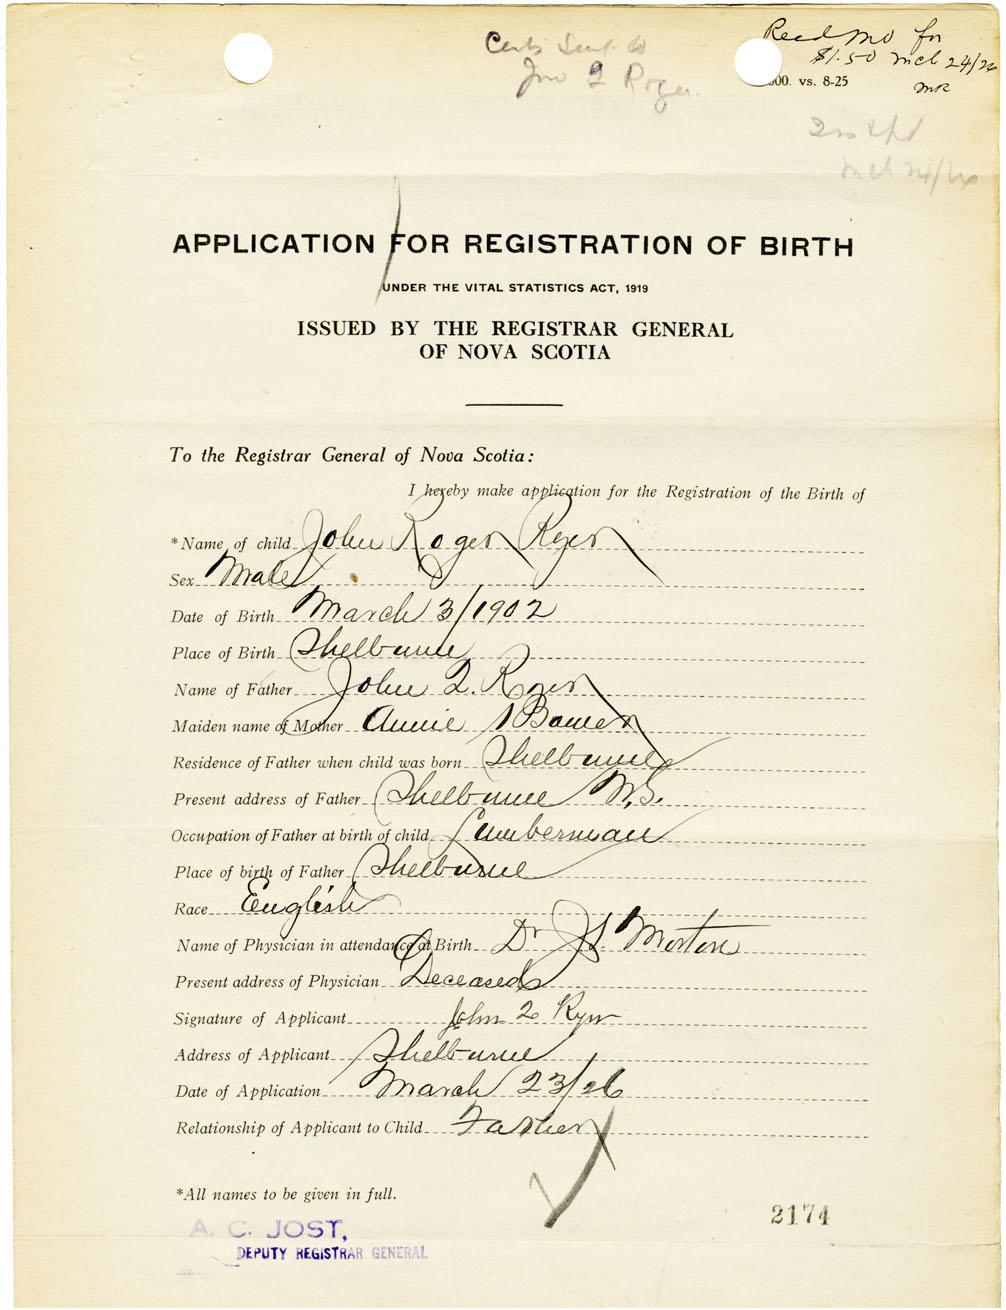 Certi Sent to
Jno Q Roger.
Recd MO for
$1.50 Mch 24/26
MR
000. vs. 8-25
Mch 24/26
APPLICATION FOR REGISTRATION OF BIRTH
UNDER THE VITAL STATISTICS ACT, 1919
ISSUED BY THE REGISTRAR GENERAL
OF NOVA SCOTIA
To the Registrar General of Nova Scotia:
I hereby make application for the Registration of the Birth of
*Name of child John Roger Ryer
Sex Male
Date of Birth March 3/1902
Place of Birth Shelburne
Name of Father John Q. Ryer
Maiden name of Mother Annie Bower
Residence of Father when child was born Shelburne
Present address of Father Shelburne N.S.
Occupation of Father at birth of child Lumberman
Place of birth of Father Shelburne
Race English
Name of Physician in attendance at Birth Dr Morton
Present address of Physician Deceased
Signature of Applicant John Q Ryer
Address of Applicant Shelburne
Date of Application March 23/26
Relationship of Applicant to Child Father
*All names to be given in full.
2174
A. C. JOST,
DEPUTY REGISTRAR GENERAL